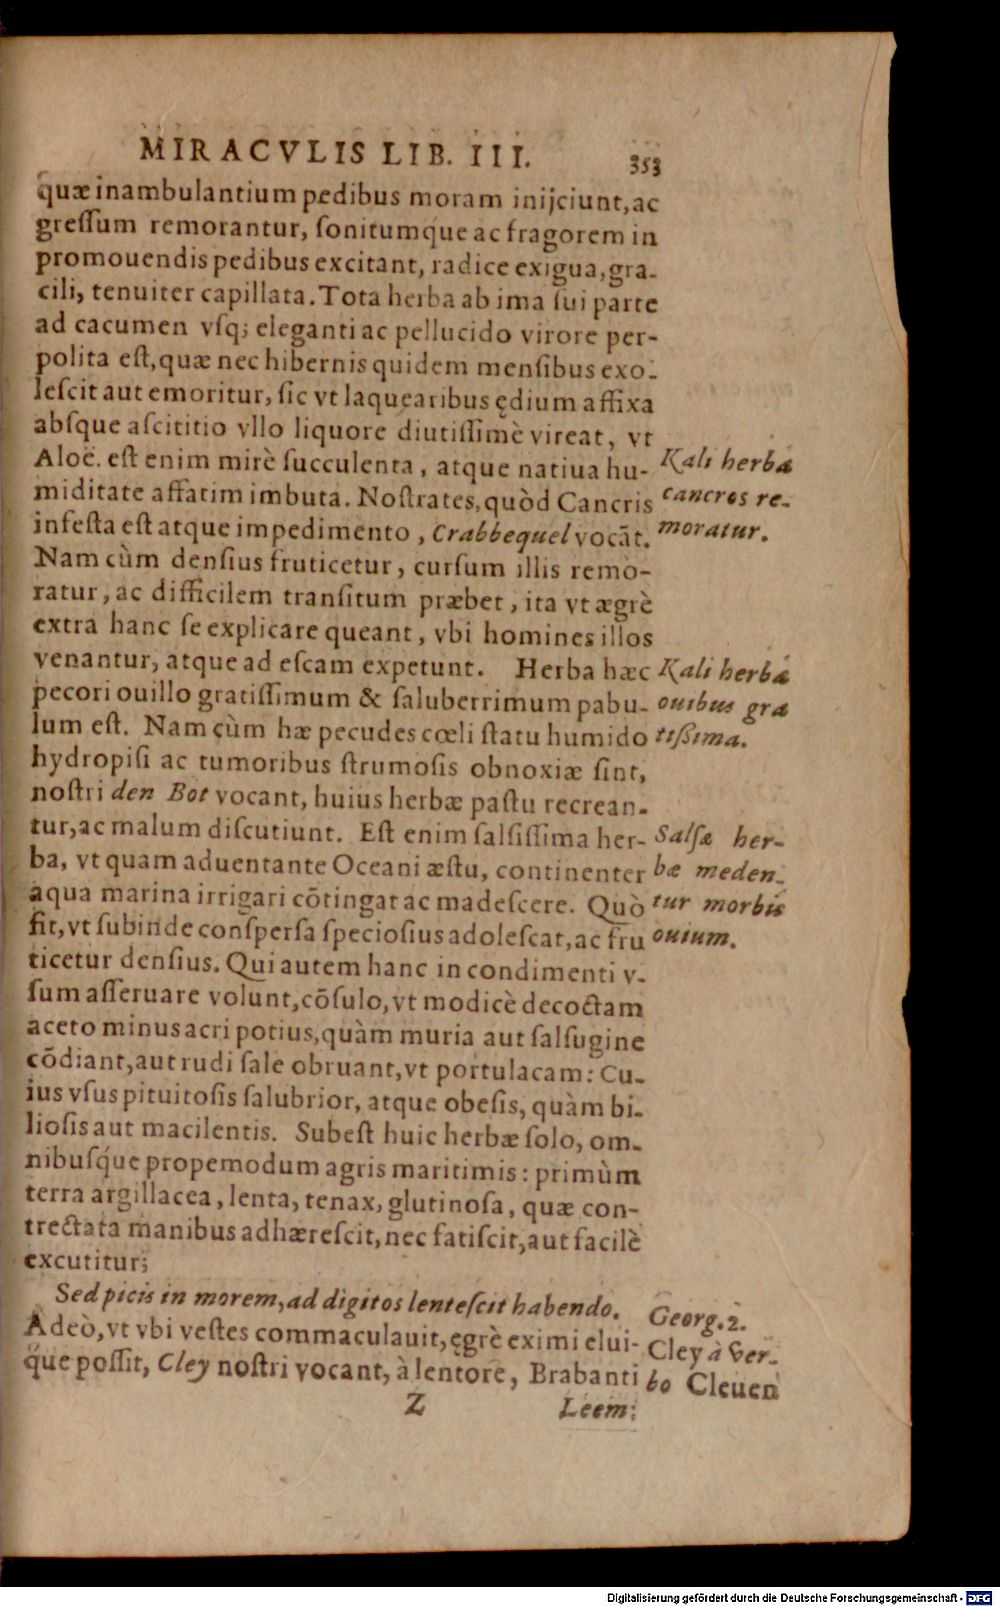 MIRACVLIS LIB. III. 353
quæ inambulantium pedibus moram inijciunt, ac
greſſum remorantur, ſonitumq́ue ac fragorem in
promouendis pedibus excitant, radice exigua, gra-
cili, tenuiter capillata. Tota herba ab ima ſui parte
ad cacumen vſq; eleganti ac pellucido virore per-
polita eſt, quæ nec hibernis quidem menſibus exo-
leſcit aut emoritur, ſic vt laquearibus ędium affixa
abſque aſcititio vllo liquore diutiſſimè vireat, vt
Aloë. eſt enim mirè ſucculenta, atque natiua hu-
miditate affatim imbuta. Noſtrates, quòd Cancris
infeſta eſt atque impedimento, Crabbequel vocāt.
Kali herba
cancros re-
moratur.
Nam cùm denſius fruticetur, curſum illis remo-
ratur, ac difficilem tranſitum præbet, ita vt ægrè
extra hanc ſe explicare queant, vbi homines illos
venantur, atque ad eſcam expetunt. Herba hæc
pecori ouillo gratiſſimum & ſaluberrimum pabu-
lum eſt. Nam cùm hæ pecudes cœli ſtatu humido
Kali herba
ouibus gra
tiſſima.
hydropiſi ac tumoribus ſtrumoſis obnoxiæ ſint,
noſtri den Bot vocant, huius herbæ paſtu recrean-
tur, ac malum diſcutiunt. Eſt enim ſalſiſſima her-
ba, vt quam aduentante Oceani æſtu, continenter
aqua marina irrigari cōtingat ac madeſcere. Quò
fit, vt ſubinde conſperſa ſpecioſius adoleſcat, ac fru
Salſæ her-
bæ meden-
tur morbis
ouium.
ticetur denſius. Qui autem hanc in condimenti v-
ſum aſſeruare volunt, cōſulo, vt modicè decoctam
aceto minus acri potius, quàm muria aut ſalſugine
cōdiant, aut rudi ſale obruant, vt portulacam: Cu-
ius vſus pituitoſis ſalubrior, atque obeſis, quàm bi-
lioſis aut macilentis. Subeſt huic herbæ ſolo, om-
nibuſq́ue propemodum agris maritimis: primùm
terra argillacea, lenta, tenax, glutinoſa, quæ con-
trectata manibus adhæreſcit, nec fatiſcit, aut facilè
excutitur;
Sed picis in morem, ad digitos lenteſcit habendo.
Adeò, vt vbi veſtes commaculauit, ęgrè eximi elui-
q́ue poſſit, Cley noſtri vocant, à lentore, Brabanti
Georg. 2.
Cley à ver-
bo Cleuen
Z Leem:
Digitalisierung gefördert durch die Deutsche Forschungsgemeinschaft - DFG